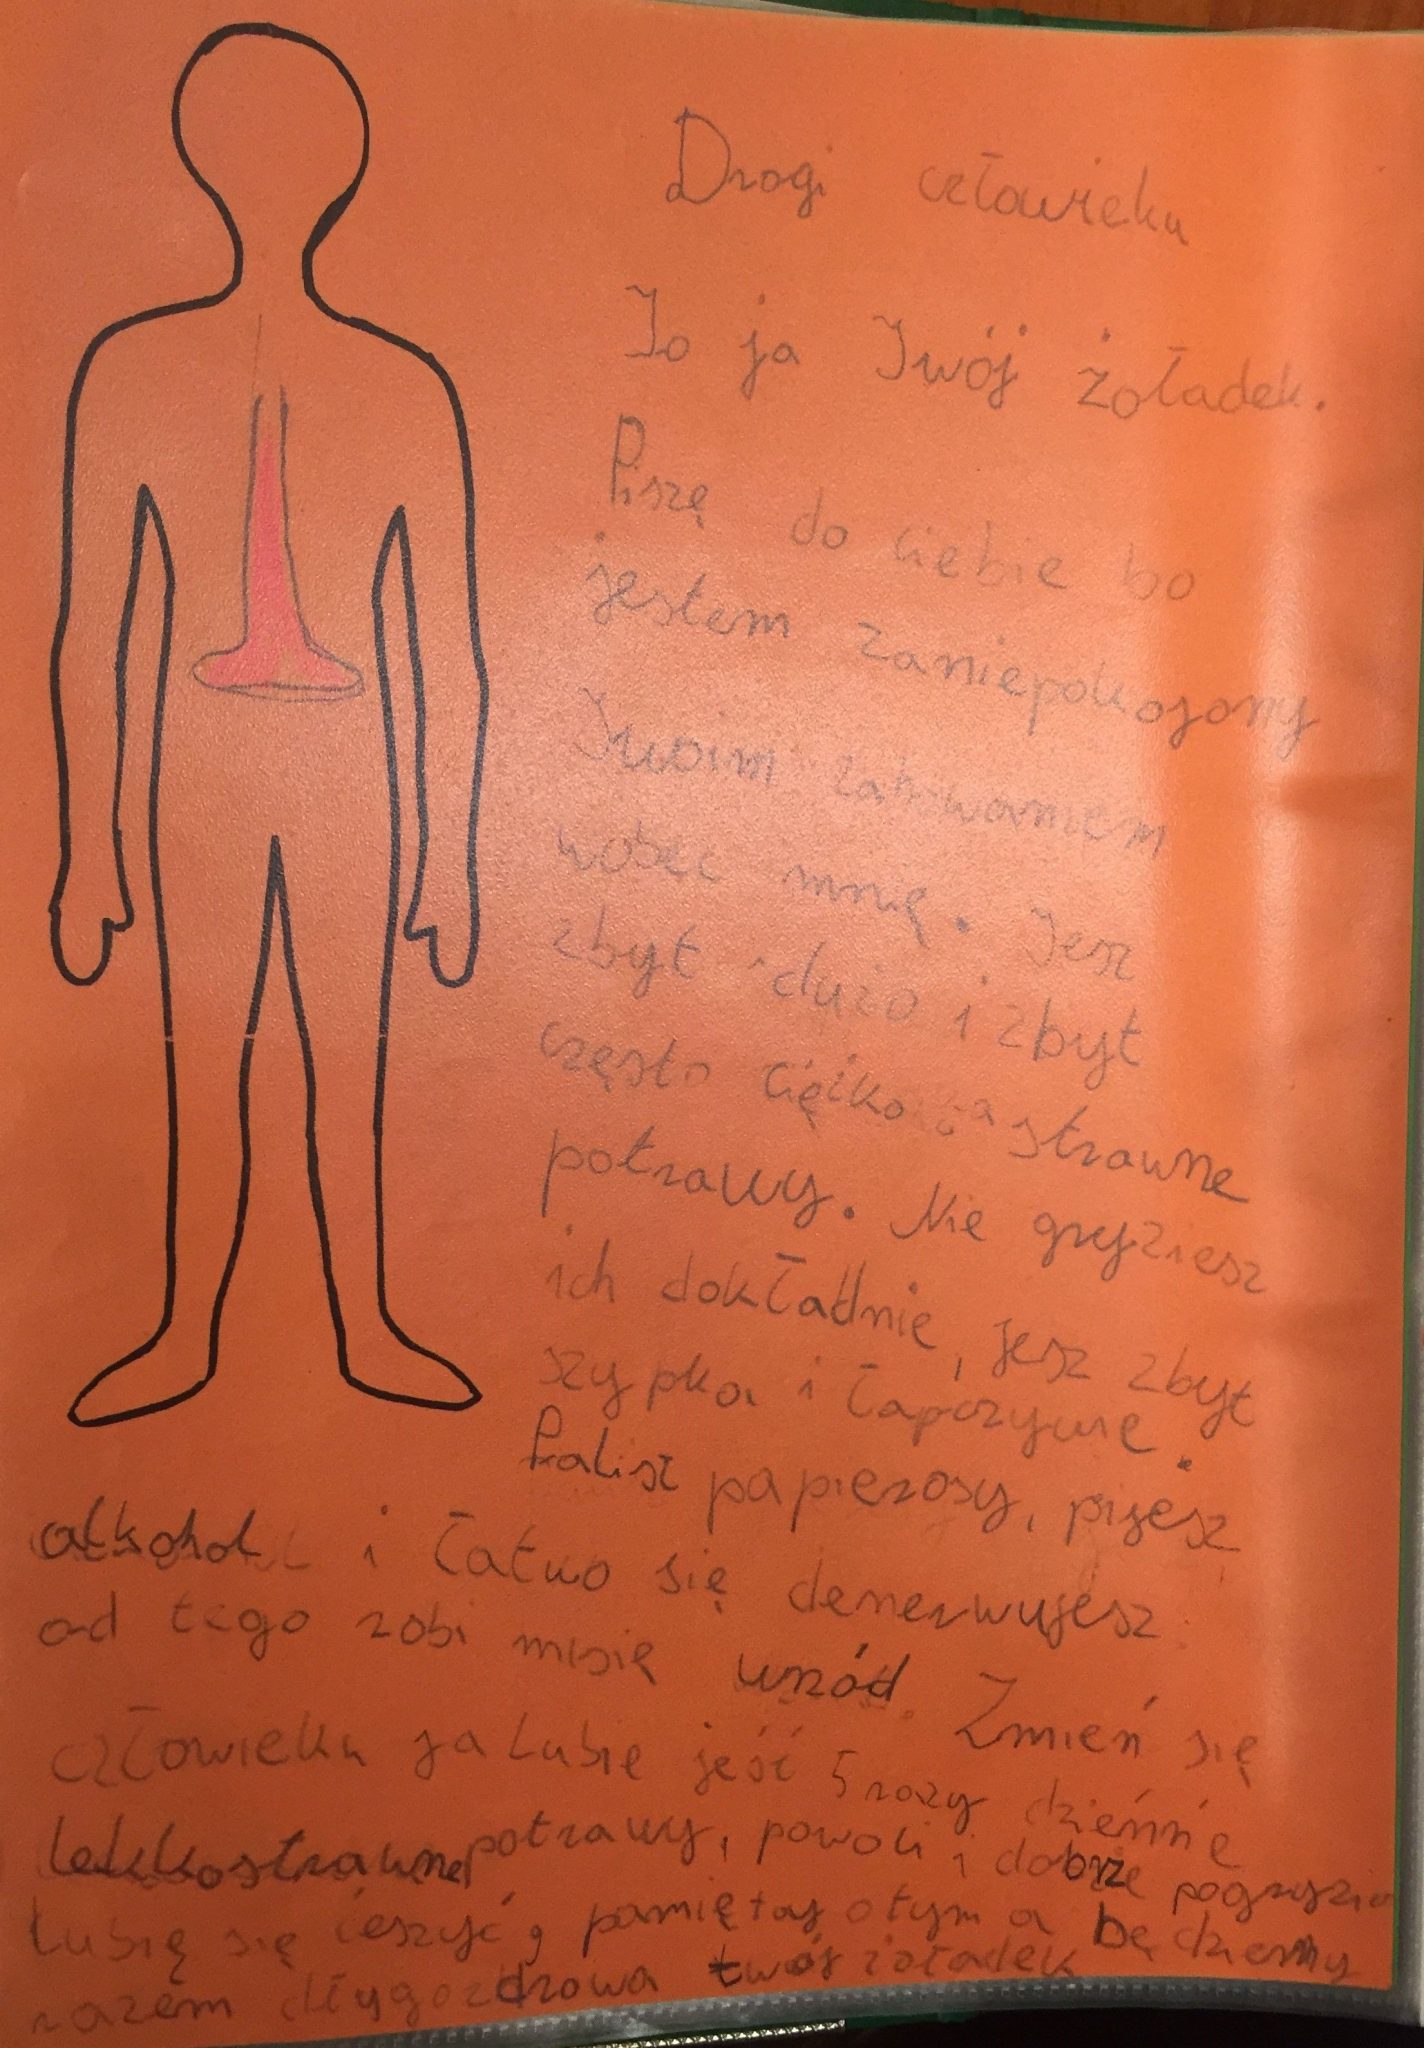 Drogi człowieku
To ja Twój żoładek.
Piszę do ciebie bo
jestem zaniepokojony
Twoim zahowaniem
wobec mnię. Jesz
zbyt dużo i zbyt
często ciężko strawne
potrawy. Nie gryziesz
ich dokładnie, jesz zbyt
szypko i łapczywie.
Palisz papierosy, pijesz
alkohol i łatwo się denerwujesz
od tego robi misię wrzód. Zmień się
człowieku ja lubię jeść 5 razy dziennie
lekkostrawne potrawy, powoli i dobrze
Lubię się cieszyć, pamiętaj o tym a będziemy
razem dłygo zdrowa twój żoładek